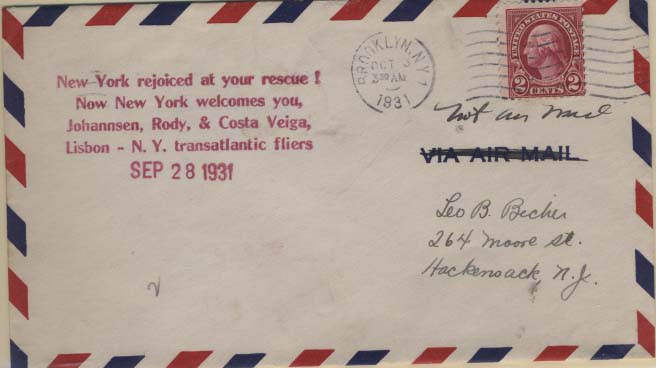 New York rejoiced at your rescue !
Now New York welcomes you,
Johannsen, Rody, & Costa Veiga,
Lisbon - N. Y. transatlantic fliers
SEP 28 1931
BROOKLYN, N.Y.
OCT 3
3 30 AM
1931
UNITED STATES POSTAGE
2 CENTS 2
not air mail
VIA AIR MAIL
Leo B. Becher
264 Moore St.
Hackensack, N.J.
2